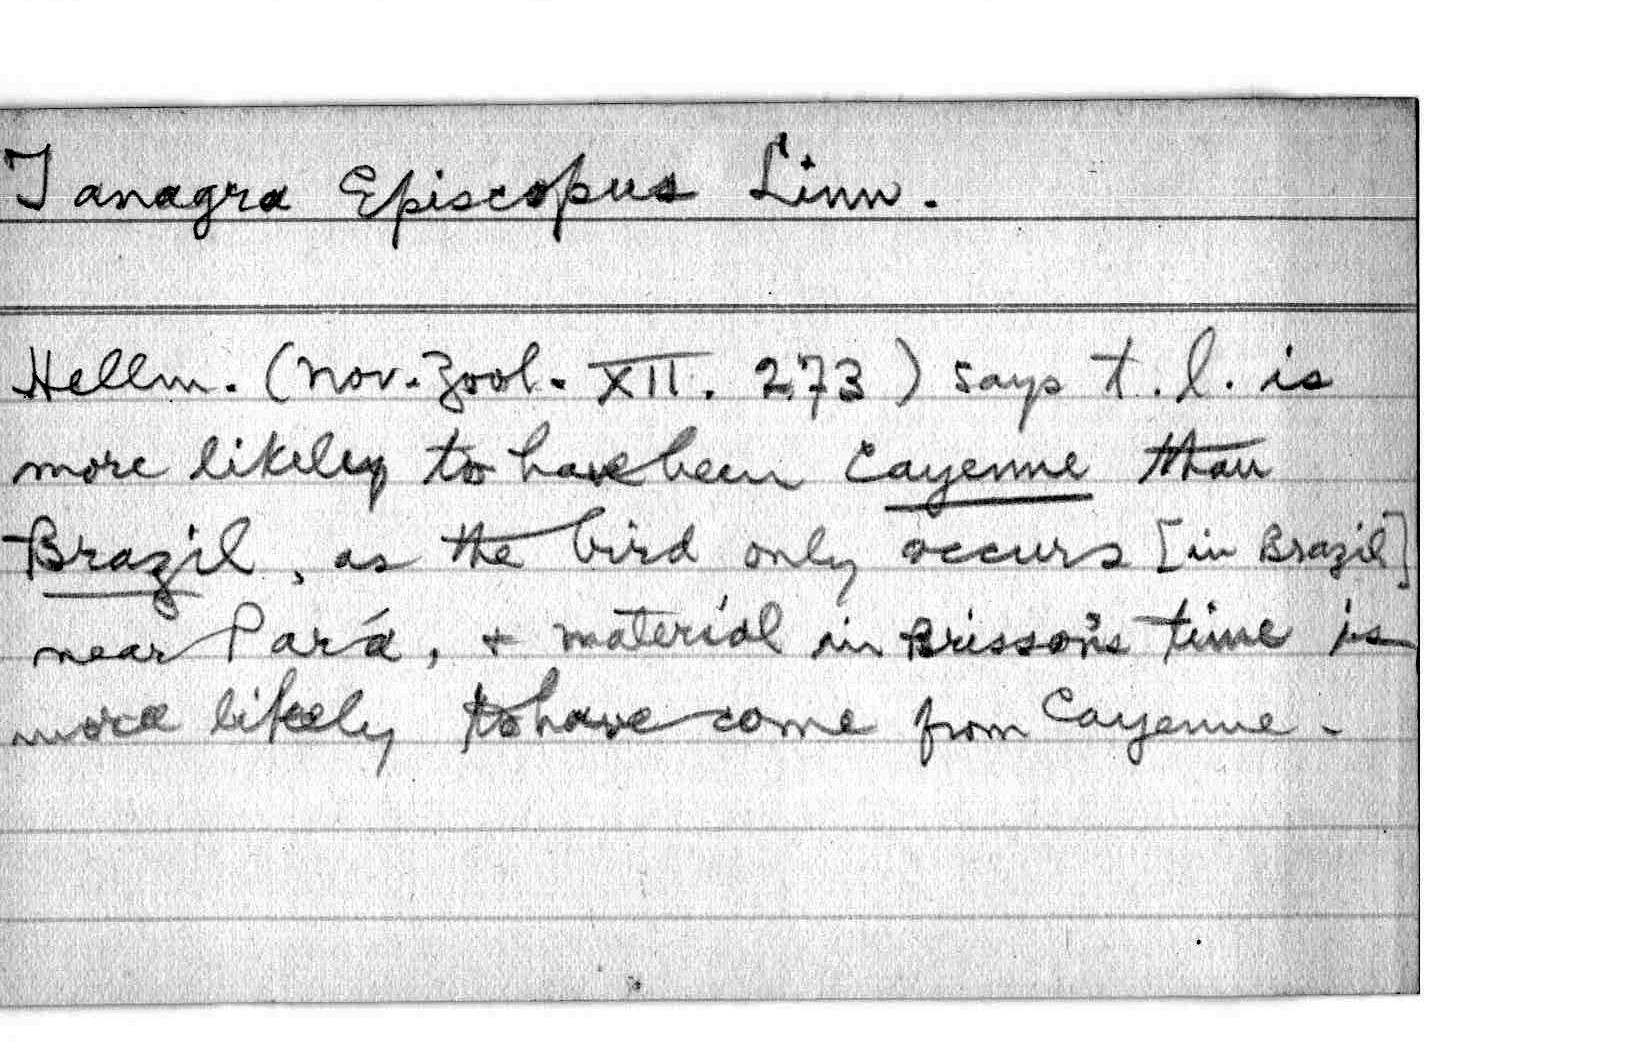 Tanagra Episcopus Linn.
Hellm. (Nov. Zool. XII. 273) says t. l. is
more likely to have been Cayenne than
Brazil, as the bird only occurs [in Brazil]
near Pará, + material in Brisson's time is
more likely to have come from Cayenne.